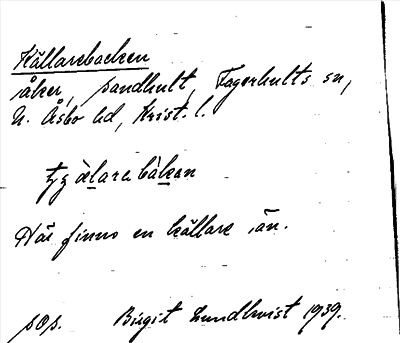 Källarebacken
åker, Sandhult, Fagerhults sn,
N. Åsbo hd, Krist. l.
tyälarabakan
Här finns en källare än.
sOs. Birgit Lundkvist 1939.